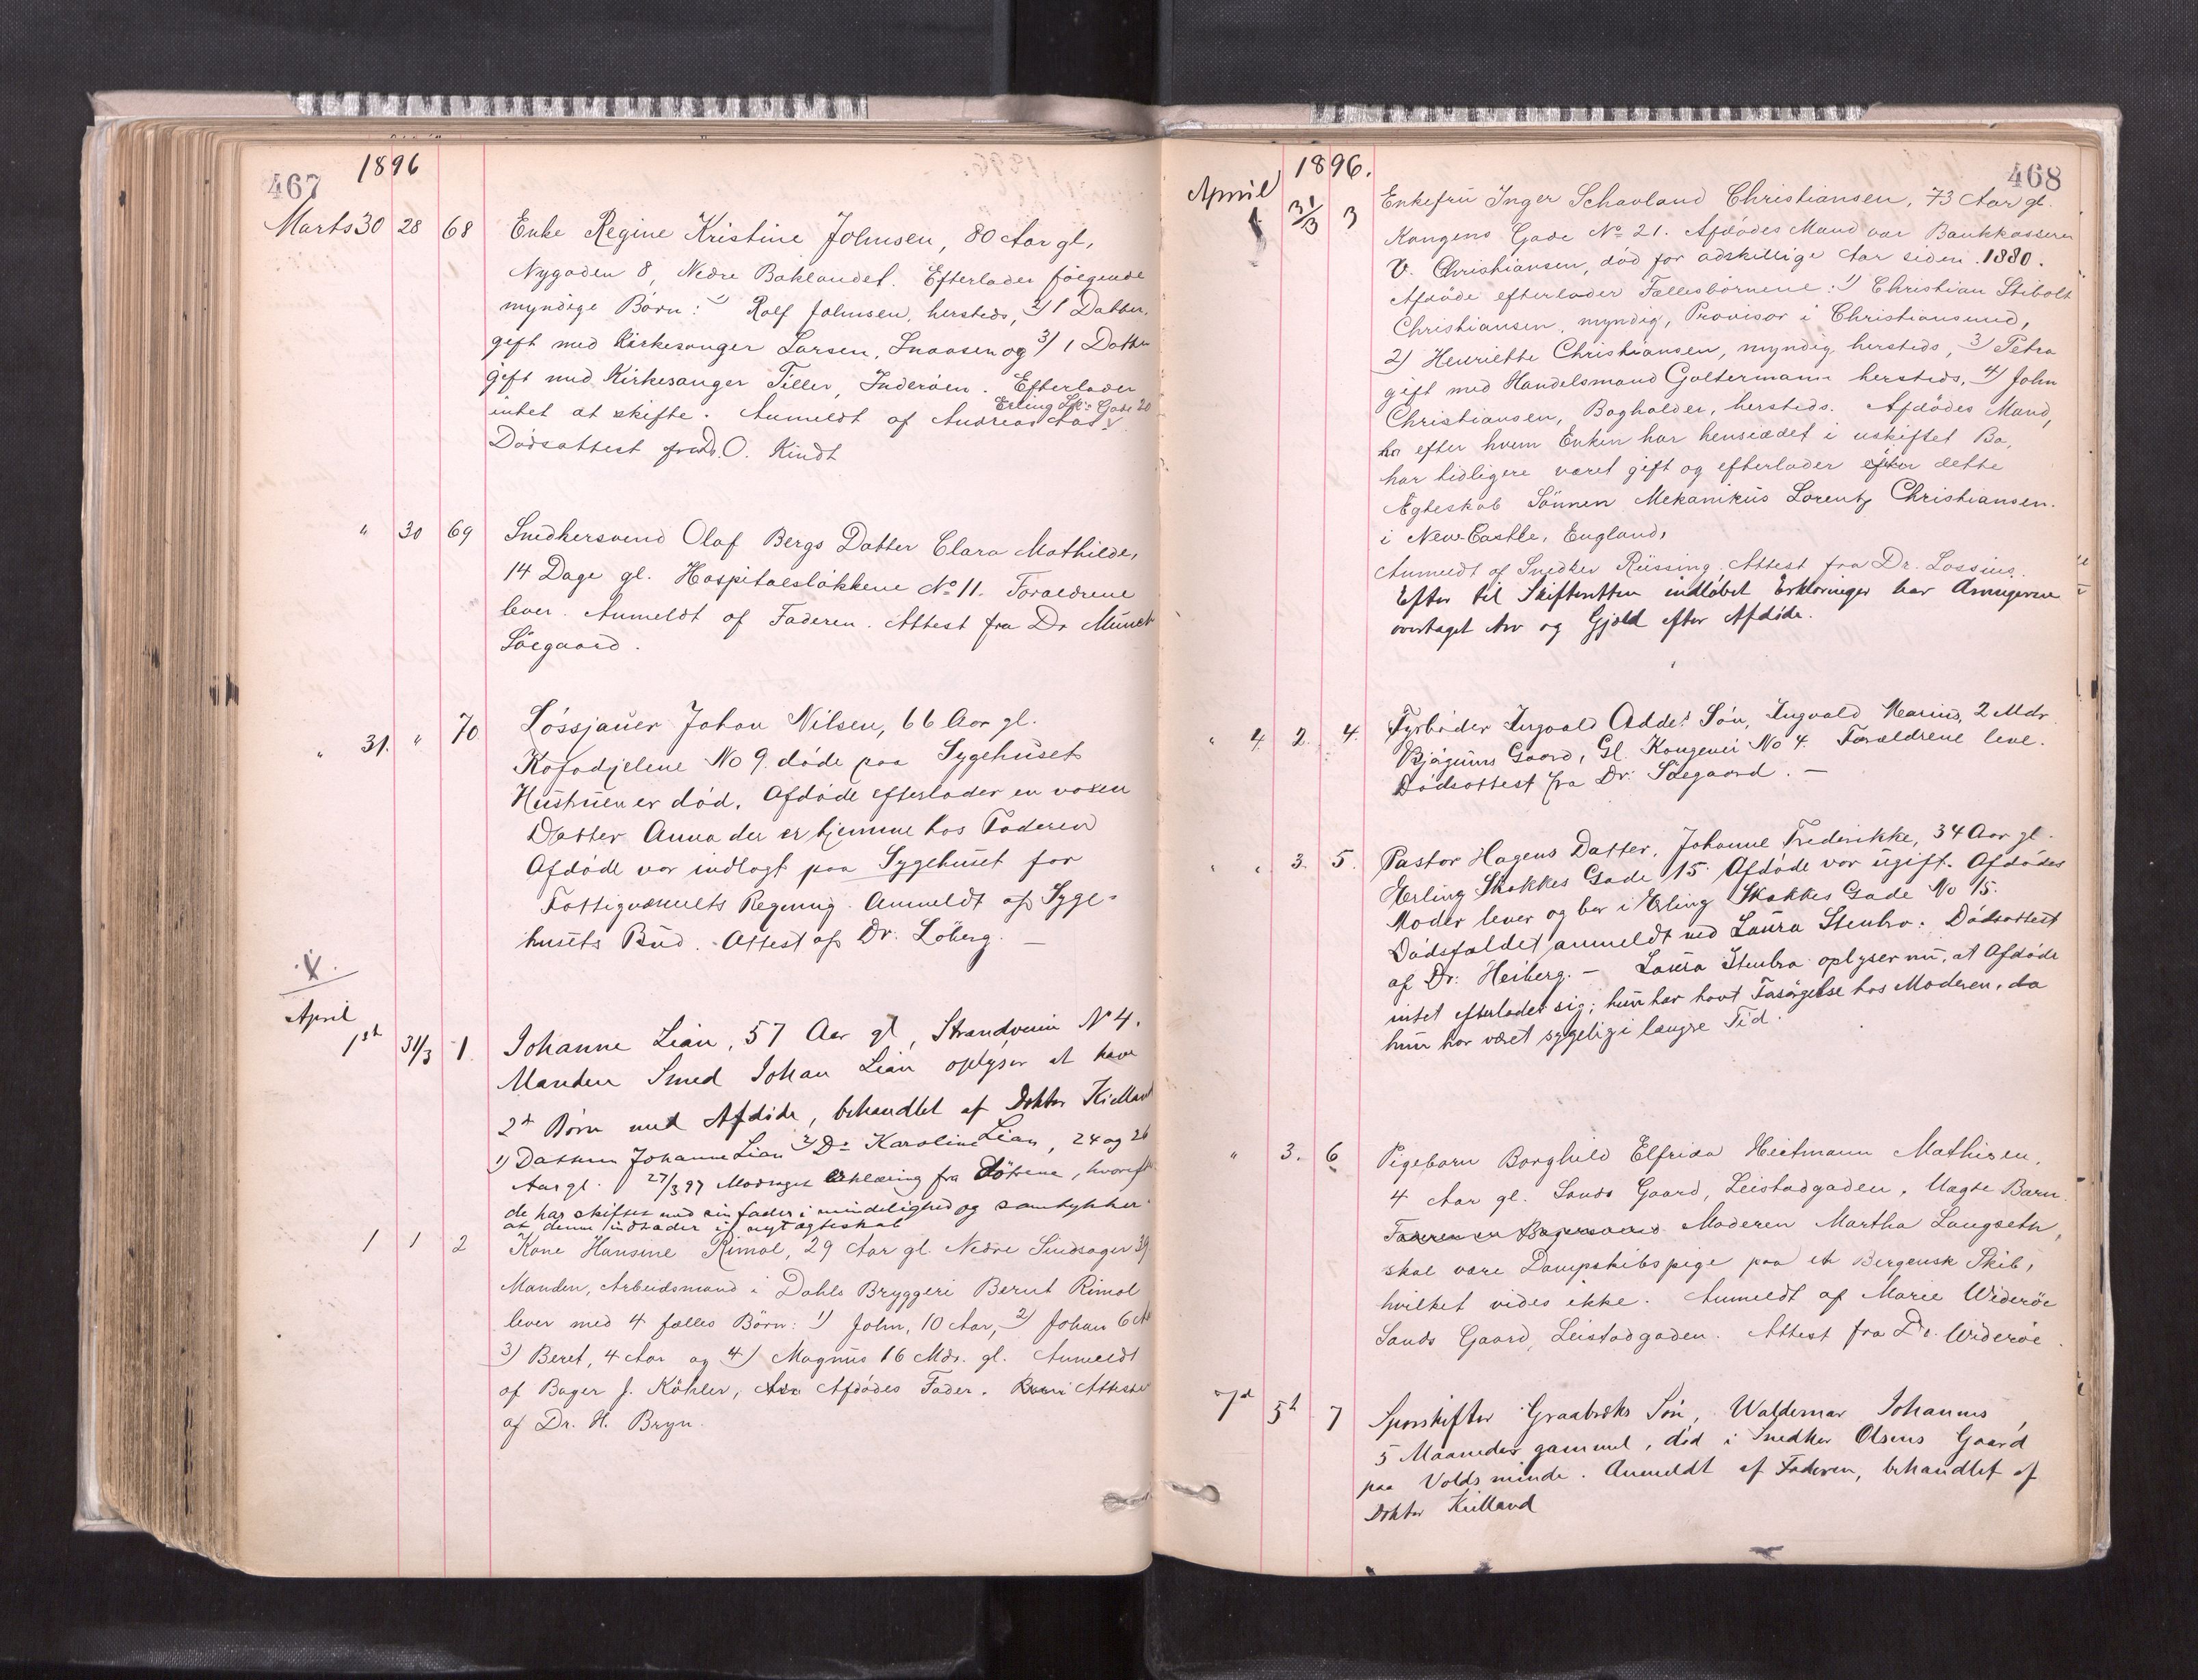 467
1896
Marts 30 28 68 Enke Regine Kristine Johnsen, 80 Aar gl,
Nygaden 8, Nedre Baklandet. Efterlader følgende
myndige Børn: 1) Rolf Johnsen, hersteds, 2) 1 Datter,
gift med Kirkesanger Larsen, Snaasen og 3) 1 Datter
gift med Kirkesanger Tiller, Inderøen. Efterlader
intet at skifte. Anmeldt af Andreas Aas Erling Sk: Gade 20
Dødsattest fra Dr. O. Kindt
" 30 69 Snedkersvend Olaf Bergs Datter Clara Mathilde,
14 Dage gl. Hospitalsløkkene No 11. Forældrene
lever. Anmeldt af Faderen. Attest fra Dr Munch
Søegaard.
" 31. " 70 Løssjauer Johan Nilsen, 66 Aar gl.
No 9. døde paa Sygehuset
Hustruen er død. Afdøde efterlader en voxen
Datter Anna der er hjemme hos Faderen
Afdøde var indlagt paa Sygehuset for
Fattigvæsenets Regning. Anmeldt af Syge-
husets Bud. Attest af Dr. Löberg. —
April
1st 31/3 1. Johanne Lian, 57 Aar gl, Strandveien N 4.
Manden Smed Johan Lian oplyser at have
2 Børn med Afdøde, behandlet af Doktor Kielland
1) Datteren Johanne Lian 2) Do Karoline Lian, 24 og 26
Aar gl. 27/3 97 Modtaget Erklæring fra Døtrene, hvorefter
de har skiftet med sin fader i mindelighed og samtykker
at denne indtræder i nyt ægteskab
1 1 2 Kone Hansine Rimol, 29 Aar gl. Nedre Singsager 39.
Manden, Arbeidsmand i Dahls Bryggeri Bernt Rimol
lever med 4 fælles Børn: 1) John, 10 Aar, 2) Johan 6 Aar
3) Beret, 4 Aar og 4) Magnus 16 Mdr. gl. Anmeldt
af Bager J. Köhler, Afdødes Fader. Attest
af Dr. H. Bryn.
468
1896.
April
1 31/3 3 Enkefru Inger Schavland Christiansen, 73 Aar gl.
Kongens Gade No 21. Afdødes Mand var Bankkasserer
V. Christiansen, død for adskillige Aar siden 1880.
Afdøde efterlader Fællesbørnene: 1) Christian Stibolt
Christiansen, myndig, Provisor i Christiansund,
2) Henriette Christiansen, myndig hersteds, 3) Petra
gift med Handelsmand Goltermann hersteds, 4) John
Christiansen, Bogholder, hersteds. Afdødes Mand,
efter hvem Enken har hensiddet i uskiftet Bo,
har tidligere været gift og efterlader efter dette
Ægteskab Sønnen Mekanikus Lorentz Christiansen.
i New-Castle, England,
Anmeldt af Snedker Rüssing. Attest fra Dr. Lossius.
Efter til Skifteretten indløbet Erklæringer har Arvingerne
overtaget Arv og Gjæld efter Afdøde.
" 4 2. 4. Fyrbøder Ingvald Søn, Ingvald Marius, 2 Mdr
Gaard, Gl. Kongevei No 4. Forældrene leve.
Dødsattest fra Dr: Söegaard. —
" " 3. 5. Pastor Hagens Datter, Johanne Frederikke, 34 Aar gl.
Erling Skakkes Gade 15. Afdøde var ugift. Afdødes
Moder lever og bor i Erling Skakkes Gade No 15.
Dødsfaldet anmeldt ved Laura Stenbro. Dødsattest
af Dr: Heiberg. — Laura Stenbro oplyser nu, at Afdøde
intet efterlader sig; hun har havt Forsørgelse hos Moderen, da
hun har været sygelig i længre Tid.
" 3. 6 Pigebarn Borghild Elfrida Heitmann Mathisen,
4 Aar gl. Sands Gaard, Leistadgaden. Uægte Barn.
Faderen er Moderen Martha Langseth,
skal være Dampskibspige paa et Bergensk Skib,
hvilket vides ikke. Anmeldt af Marie Widerøe
Sands Gaard, Leistadgaden. Attest fra Dr. Widerøe.
7d 5t 7 Sporskifter Graabræks Søn, Waldemar Johannes,
5 Maaneder gammel, død i Snedker Olsens Gaard
paa Voldsminde. Anmeldt af Faderen, behandlet af
Doktor Kielland